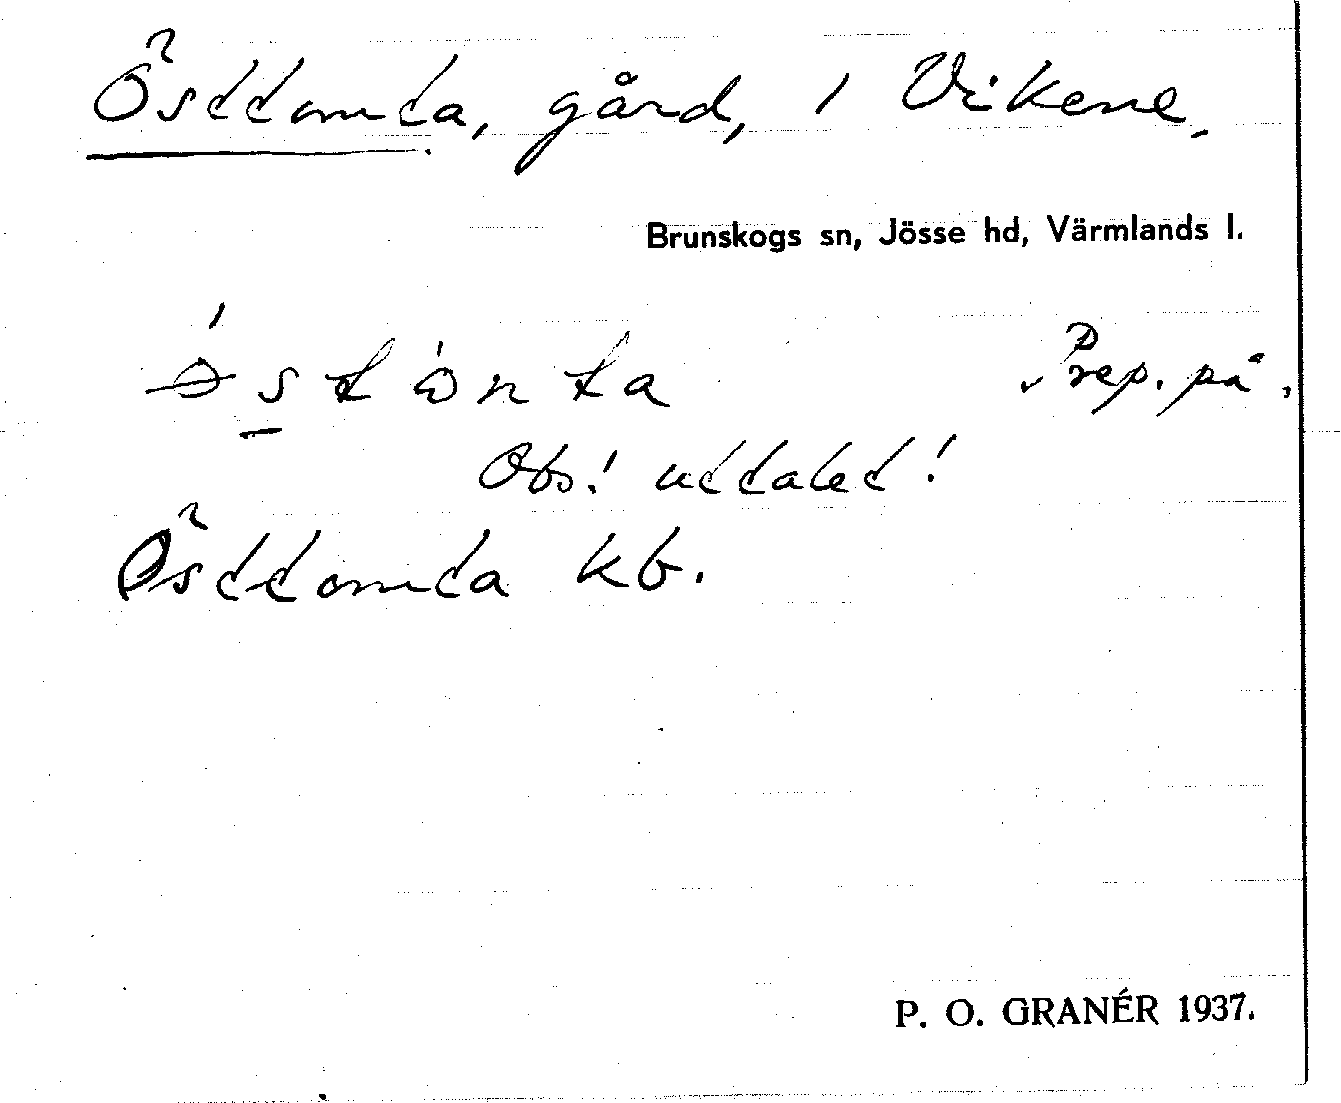 Östtomta, gård, 1 Vikene,
Brunskogs sn, Jösse hd, Värmlands l.
Prep. på,
Obs! uttalet!
Östtomta kb.
P. O. GRANÉR 1937.